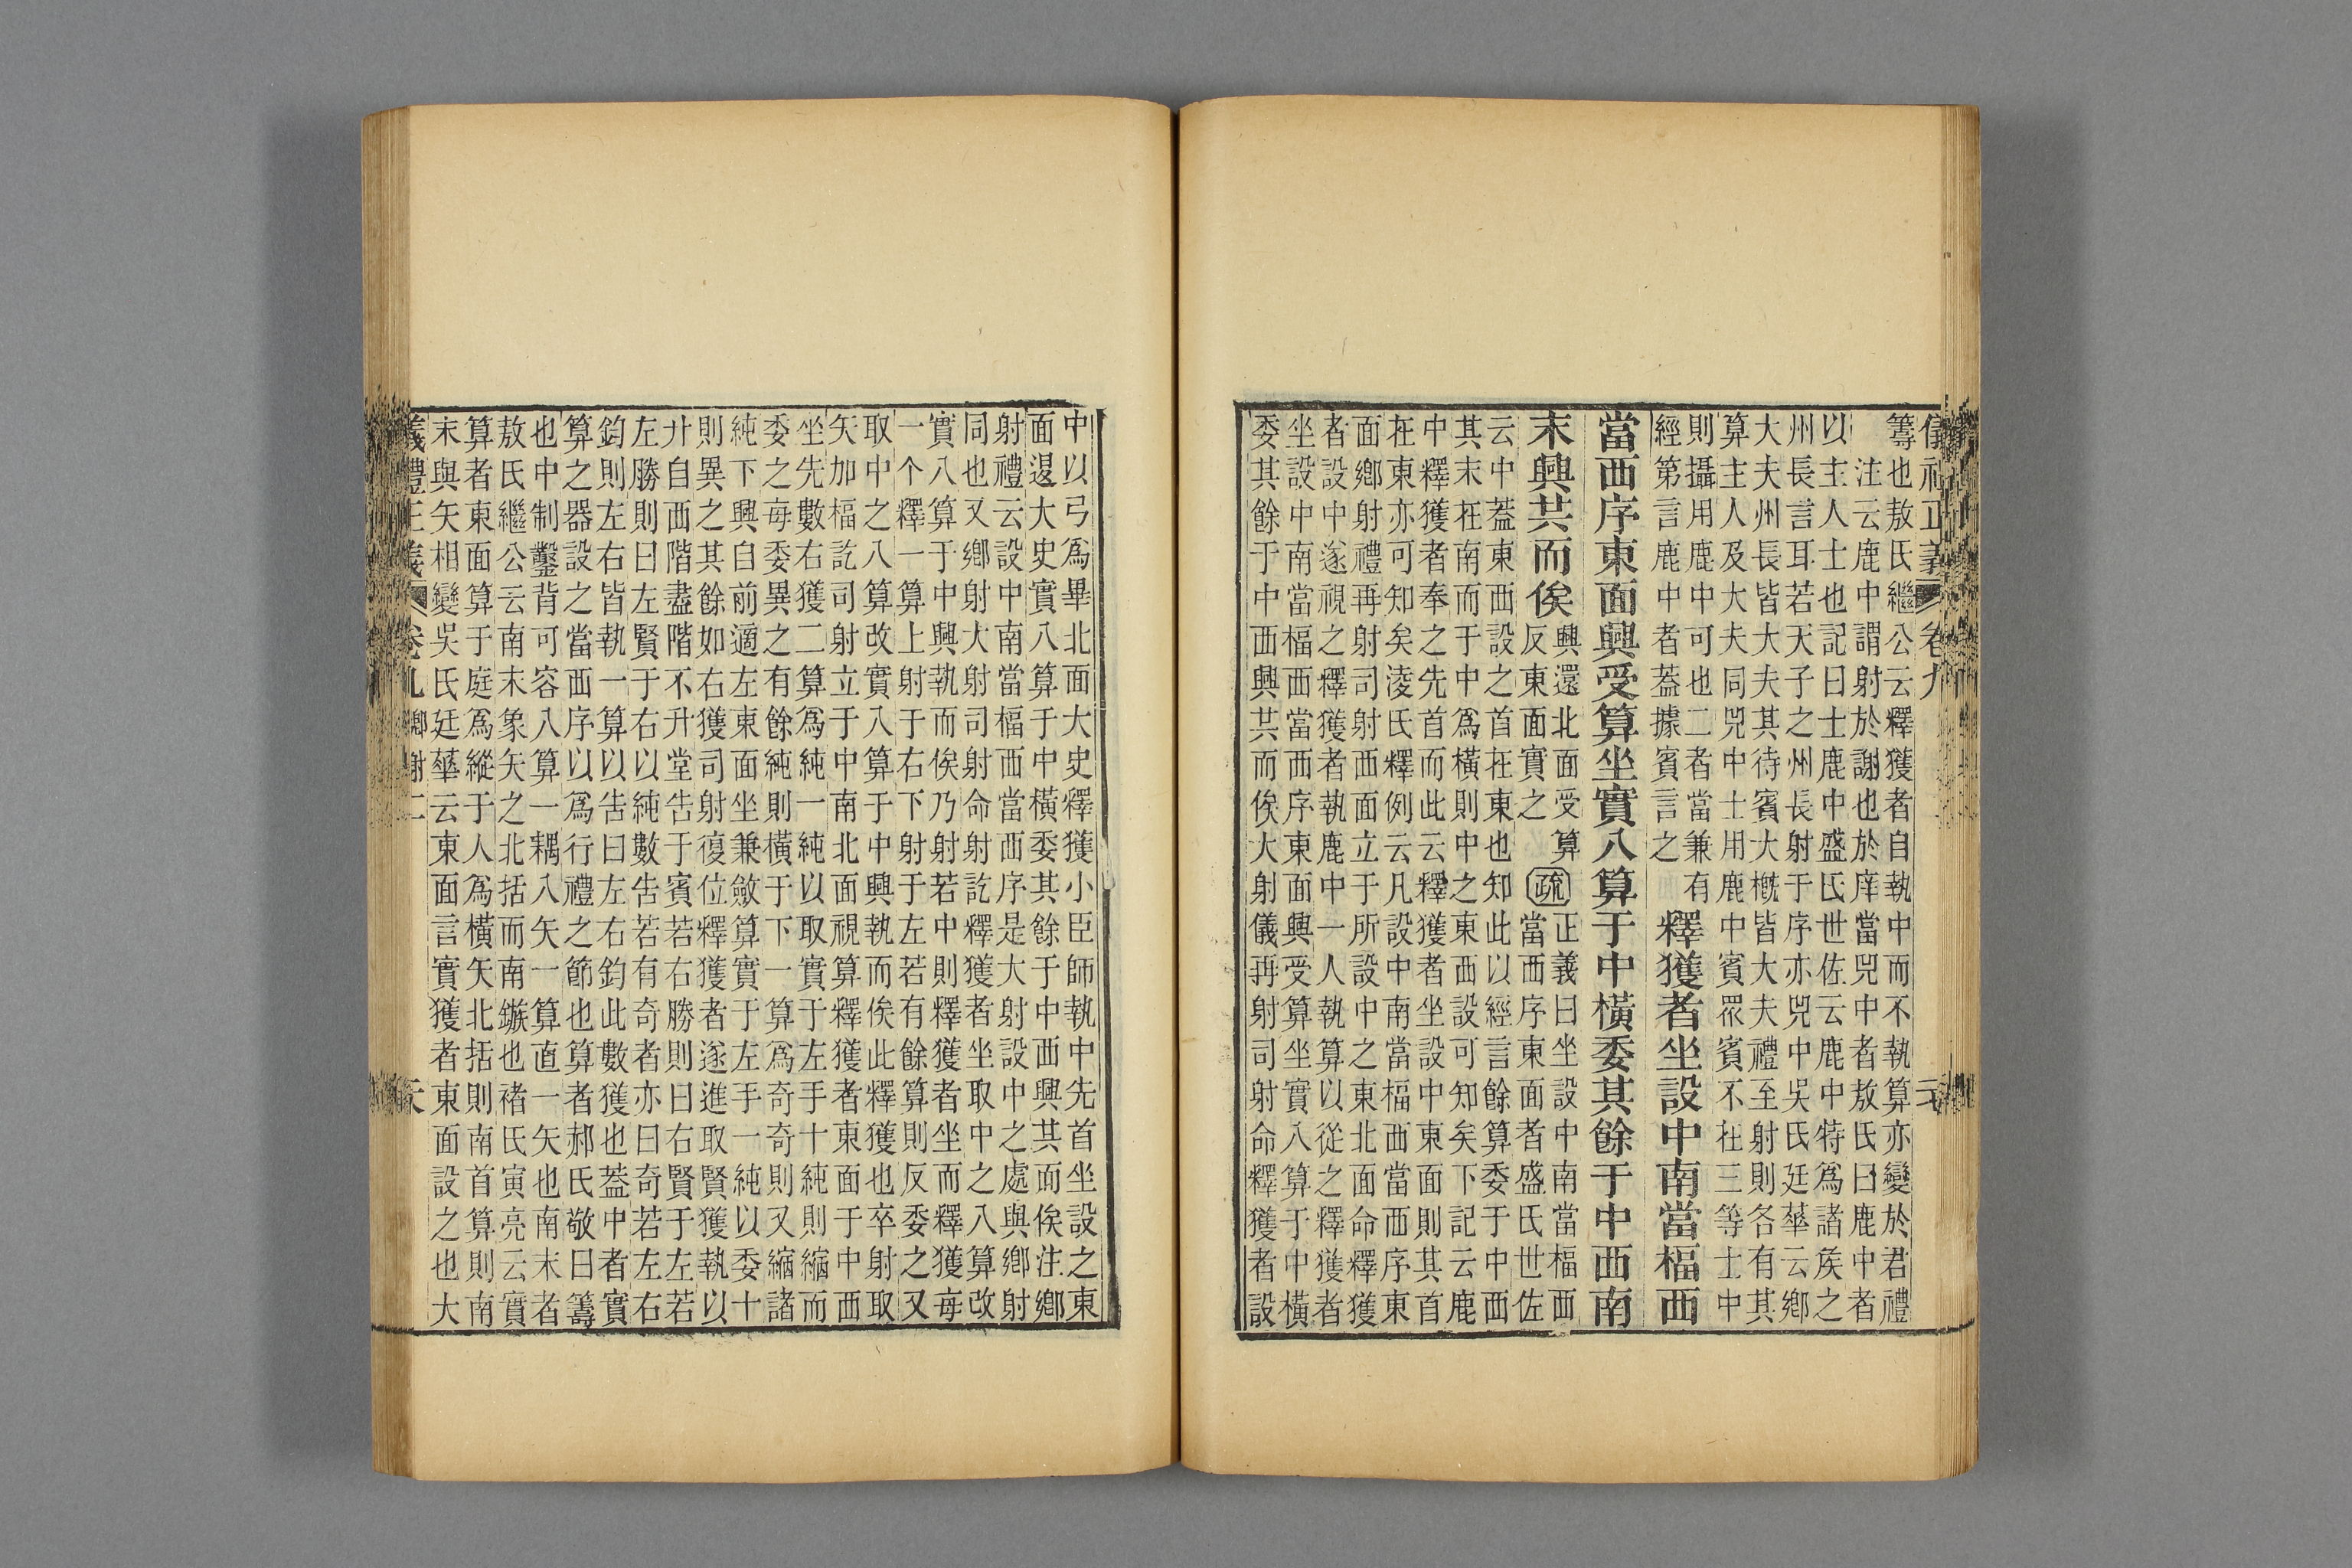 儀禮正義 卷九
籌也敖氏繼公云釋獲者自執中而不執算亦變於君禮
注云鹿中謂射於謝也於庠當兕中者敖氏曰鹿中者
以主人士也記曰士鹿中盛氏世佐云鹿中特為諸矦之
州長言耳若天子之州長射于序亦兕中吳氏廷華云鄉
大夫州長皆大夫其待賓大槪皆大夫禮至射則各有其
算主人及大夫同兕中士用鹿中賓眾賓不在三等士中
則攝用鹿中可也二者當兼有
經第言鹿中者葢據賓言之
釋獲者坐設中南當楅西
當西序東面興受算坐實八算于中橫委其餘于中西南
末興共而俟
興還北面受算
反東面實之
疏
正義曰坐設中南當楅西
當西序東面者盛氏世佐
云中葢東西設之首在東也知此以經言餘算委于中西
其末在南而于中為橫則中之東西設可知矣下記云鹿
中釋獲者奉之先首而此云釋獲者坐設中東面則其首
在東亦可知矣淩氏釋例云凡設中南當楅西當西序東
面鄉射禮再射司射西面立于所設中之東北面命釋獲
者設中遂視之釋獲者執鹿中一人執算以從之釋獲者
坐設中南當楅西當西序東面興受算坐實八算于中橫
委其餘于中西興共而俟大射儀再射司射命釋獲者設
中以弓爲畢北面大史釋獲小臣師執中先首坐設之東
面退大史實八算于中橫委其餘于中西興其面俟注鄉
射禮云設中南當楅西當西序是大射設中之處與鄉射
同也又鄉射大射司射命射訖釋獲者坐取中之八算改
實八算于中興執而俟乃射若中則釋獲者坐而釋獲每
一个釋一算上射于右下射于左若有餘算則反委之又
取中之八算改實八算于中興執而俟此釋獲也卒射取
矢加楅訖司射立于中南北面視算釋獲者東面于中西
坐先數右獲二算爲純一純以取實于左手十純則縮而
委之每委異之有餘純則橫于下一算爲奇奇則又縮諸
純下興自前適左東面坐兼斂算實于左手一純以委十
則異之其餘如右獲司射復位釋獲者遂進取賢獲執以
升自西階盡階不升堂告于賓若右勝則曰右賢于左若
左勝則曰左賢于右以純數告若有奇者亦曰奇若左右
鈞則左右皆執一算以告曰左右鈞此數獲也葢中者實
算之器設之當西序以爲行禮之節也算者郝氏敬曰籌
也中制鑿背可容八算一耦八矢一算直一矢也南末者
敖氏繼公云南末象矢之北括而南鏃也褚氏寅亮云實
算者東面算于庭爲縱于人爲橫矢北括則南首算則南
末與矢相變吳氏廷華云東面言實獲者東面設之也大
儀禮正義 卷九 鄉射二